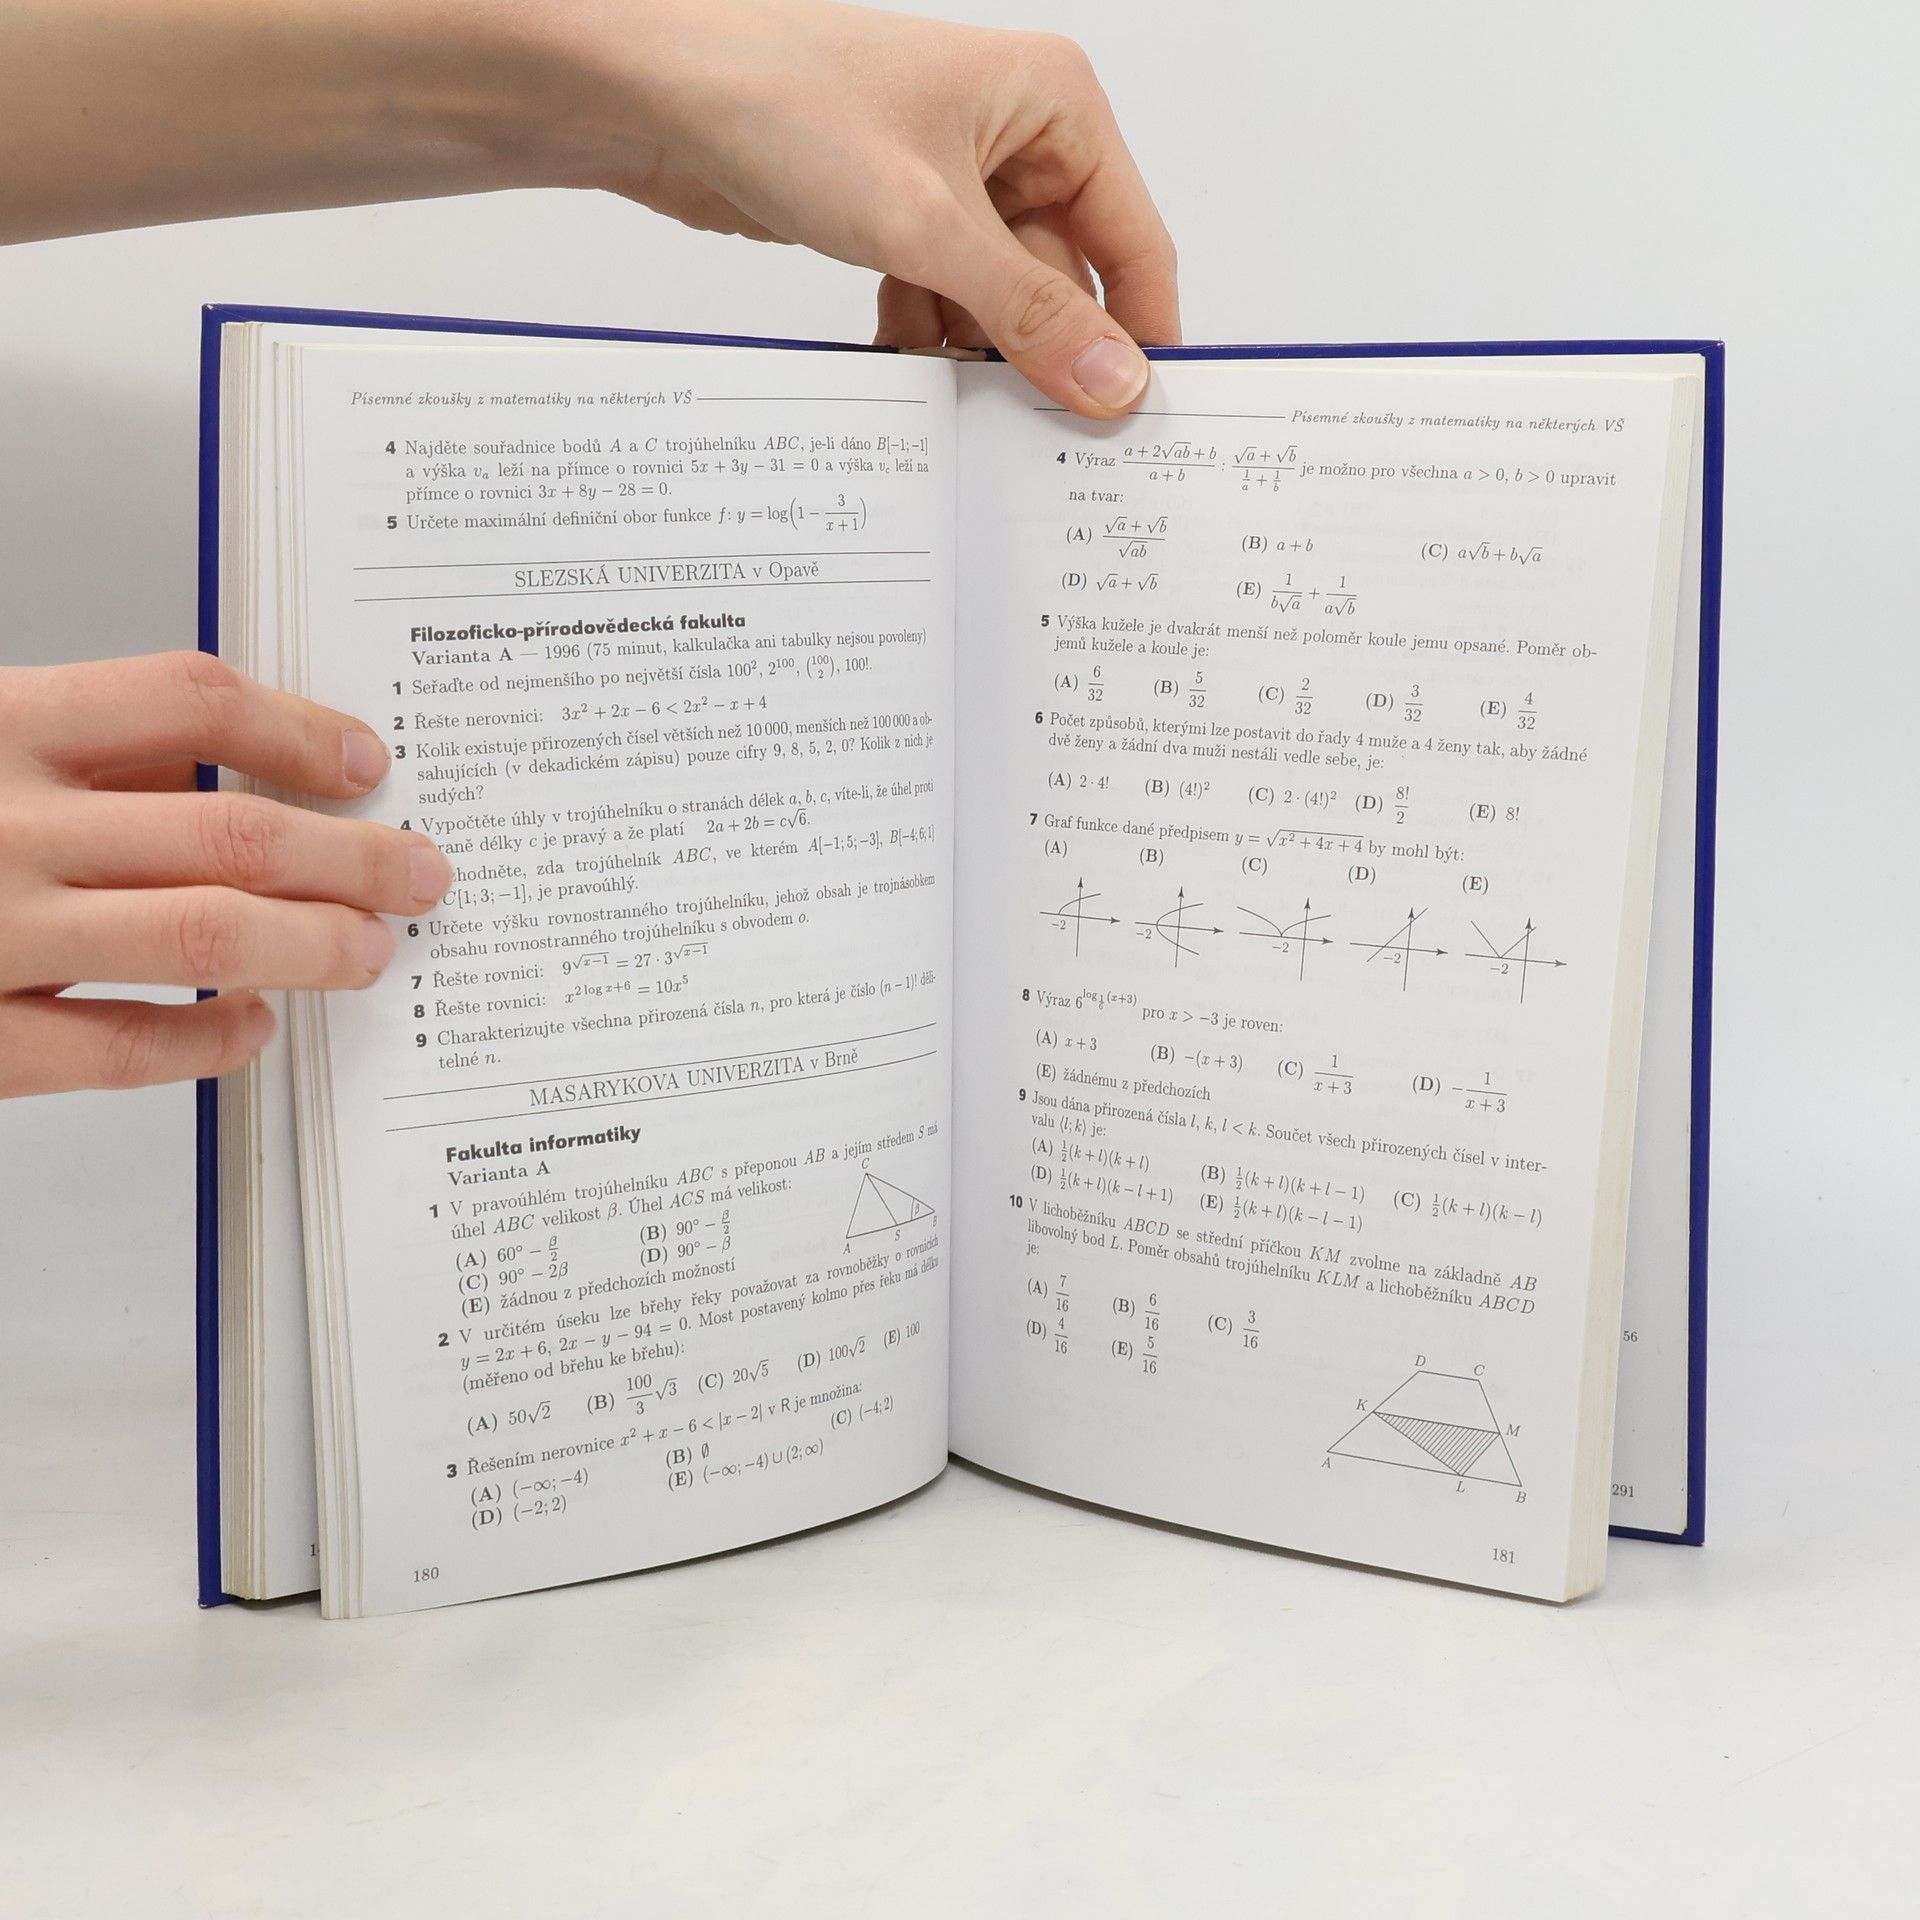 Písemné zkoušky z matematiky na některých VŠ
4 Najděte souřadnice bodů A a C trojúhelníku ABC, je-li dáno B[−1;−1]
a výška vₐ leží na přímce o rovnici 5x + 3y − 31 = 0 a výška v_c leží na
přímce o rovnici 3x + 8y − 28 = 0.
5 Určete maximální definiční obor funkce f: y = log(1 − 3/(x+1))
SLEZSKÁ UNIVERZITA v Opavě
Filozoficko-přírodovědecká fakulta
Varianta A — 1996 (75 minut, kalkulačka ani tabulky nejsou povoleny)
1 Seřaďte od nejmenšího po největší čísla 100², 2¹⁰⁰, (100 2), 100!.
2 Řešte nerovnici: 3x² + 2x − 6 < 2x² − x + 4
3 Kolik existuje přirozených čísel větších než 10 000, menších než 100 000 a ob-
sahujících (v dekadickém zápisu) pouze cifry 9, 8, 5, 2, 0? Kolik z nich je
sudých?
4 Vypočtěte úhly v trojúhelníku o stranách délek a, b, c, víte-li, že úhel proti
raně délky c je pravý a že platí 2a + 2b = c√6.
zhodněte, zda trojúhelník ABC, ve kterém A[−1; 5; −3], B[−4; 6; 1]
C[1; 3; −1], je pravoúhlý.
6 Určete výšku rovnostranného trojúhelníku, jehož obsah je trojnásobkem
obsahu rovnostranného trojúhelníku s obvodem o.
7 Řešte rovnici: 9^√(x−1) = 27 · 3^√(x−1)
8 Řešte rovnici: x^(2 log x+6) = 10x⁵
9 Charakterizujte všechna přirozená čísla n, pro která je číslo (n−1)! děli-
telné n.
MASARYKOVA UNIVERZITA v Brně
Fakulta informatiky
Varianta A
1 V pravoúhlém trojúhelníku ABC s přeponou AB a jejím středem S má
úhel ABC velikost β. Úhel ACS má velikost:
(A) 60° − β/2 (B) 90° − β/2
(C) 90° − 2β (D) 90° − β
(E) žádnou z předchozích možností
C
β
A S B
2 V určitém úseku lze břehy řeky považovat za rovnoběžky o rovnicích
y = 2x + 6, 2x − y − 94 = 0. Most postavený kolmo přes řeku má délku
(měřeno od břehu ke břehu):
(A) 50√2 (B) 100/3 √3 (C) 20√5 (D) 100√2 (E) 100
3 Řešením nerovnice x² + x − 6 < |x − 2| v R je množina:
(A) (−∞; −4) (B) ∅ (C) (−4; 2)
(D) (−2; 2) (E) (−∞; −4) ∪ (2; ∞)
180
Písemné zkoušky z matematiky na některých VŠ
4 Výraz (a + 2√ab + b)/(a + b) : (√a + √b)/(1/a + 1/b) je možno pro všechna a > 0, b > 0 upravit
na tvar:
(A) (√a + √b)/√ab (B) a + b (C) a√b + b√a
(D) √a + √b (E) 1/(b√a) + 1/(a√b)
5 Výška kužele je dvakrát menší než poloměr koule jemu opsané. Poměr ob-
jemů kužele a koule je:
(A) 6/32 (B) 5/32 (C) 2/32 (D) 3/32 (E) 4/32
6 Počet způsobů, kterými lze postavit do řady 4 muže a 4 ženy tak, aby žádné
dvě ženy a žádní dva muži nestáli vedle sebe, je:
(A) 2 · 4! (B) (4!)² (C) 2 · (4!)² (D) 8!/2 (E) 8!
7 Graf funkce dané předpisem y = √(x² + 4x + 4) by mohl být:
(A) (B) (C) (D) (E)
−2 −2 −2 −2 −2
8 Výraz 6^(log_(1/6)(x+3)) pro x > −3 je roven:
(A) x + 3 (B) −(x + 3) (C) 1/(x + 3) (D) −1/(x + 3)
(E) žádnému z předchozích
9 Jsou dána přirozená čísla l, k, l < k. Součet všech přirozených čísel v inter-
valu ⟨l; k⟩ je:
(A) ½(k + l)(k + l) (B) ½(k + l)(k + l − 1) (C) ½(k + l)(k − l)
(D) ½(k + l)(k − l + 1) (E) ½(k + l)(k − l − 1)
10 V lichoběžníku ABCD se střední příčkou KM zvolme na základně AB
libovolný bod L. Poměr obsahů trojúhelníku KLM a lichoběžníku ABCD
je:
(A) 7/16 (B) 6/16 (C) 3/16
(D) 4/16 (E) 5/16
D C
K M
A L B
181
56
291